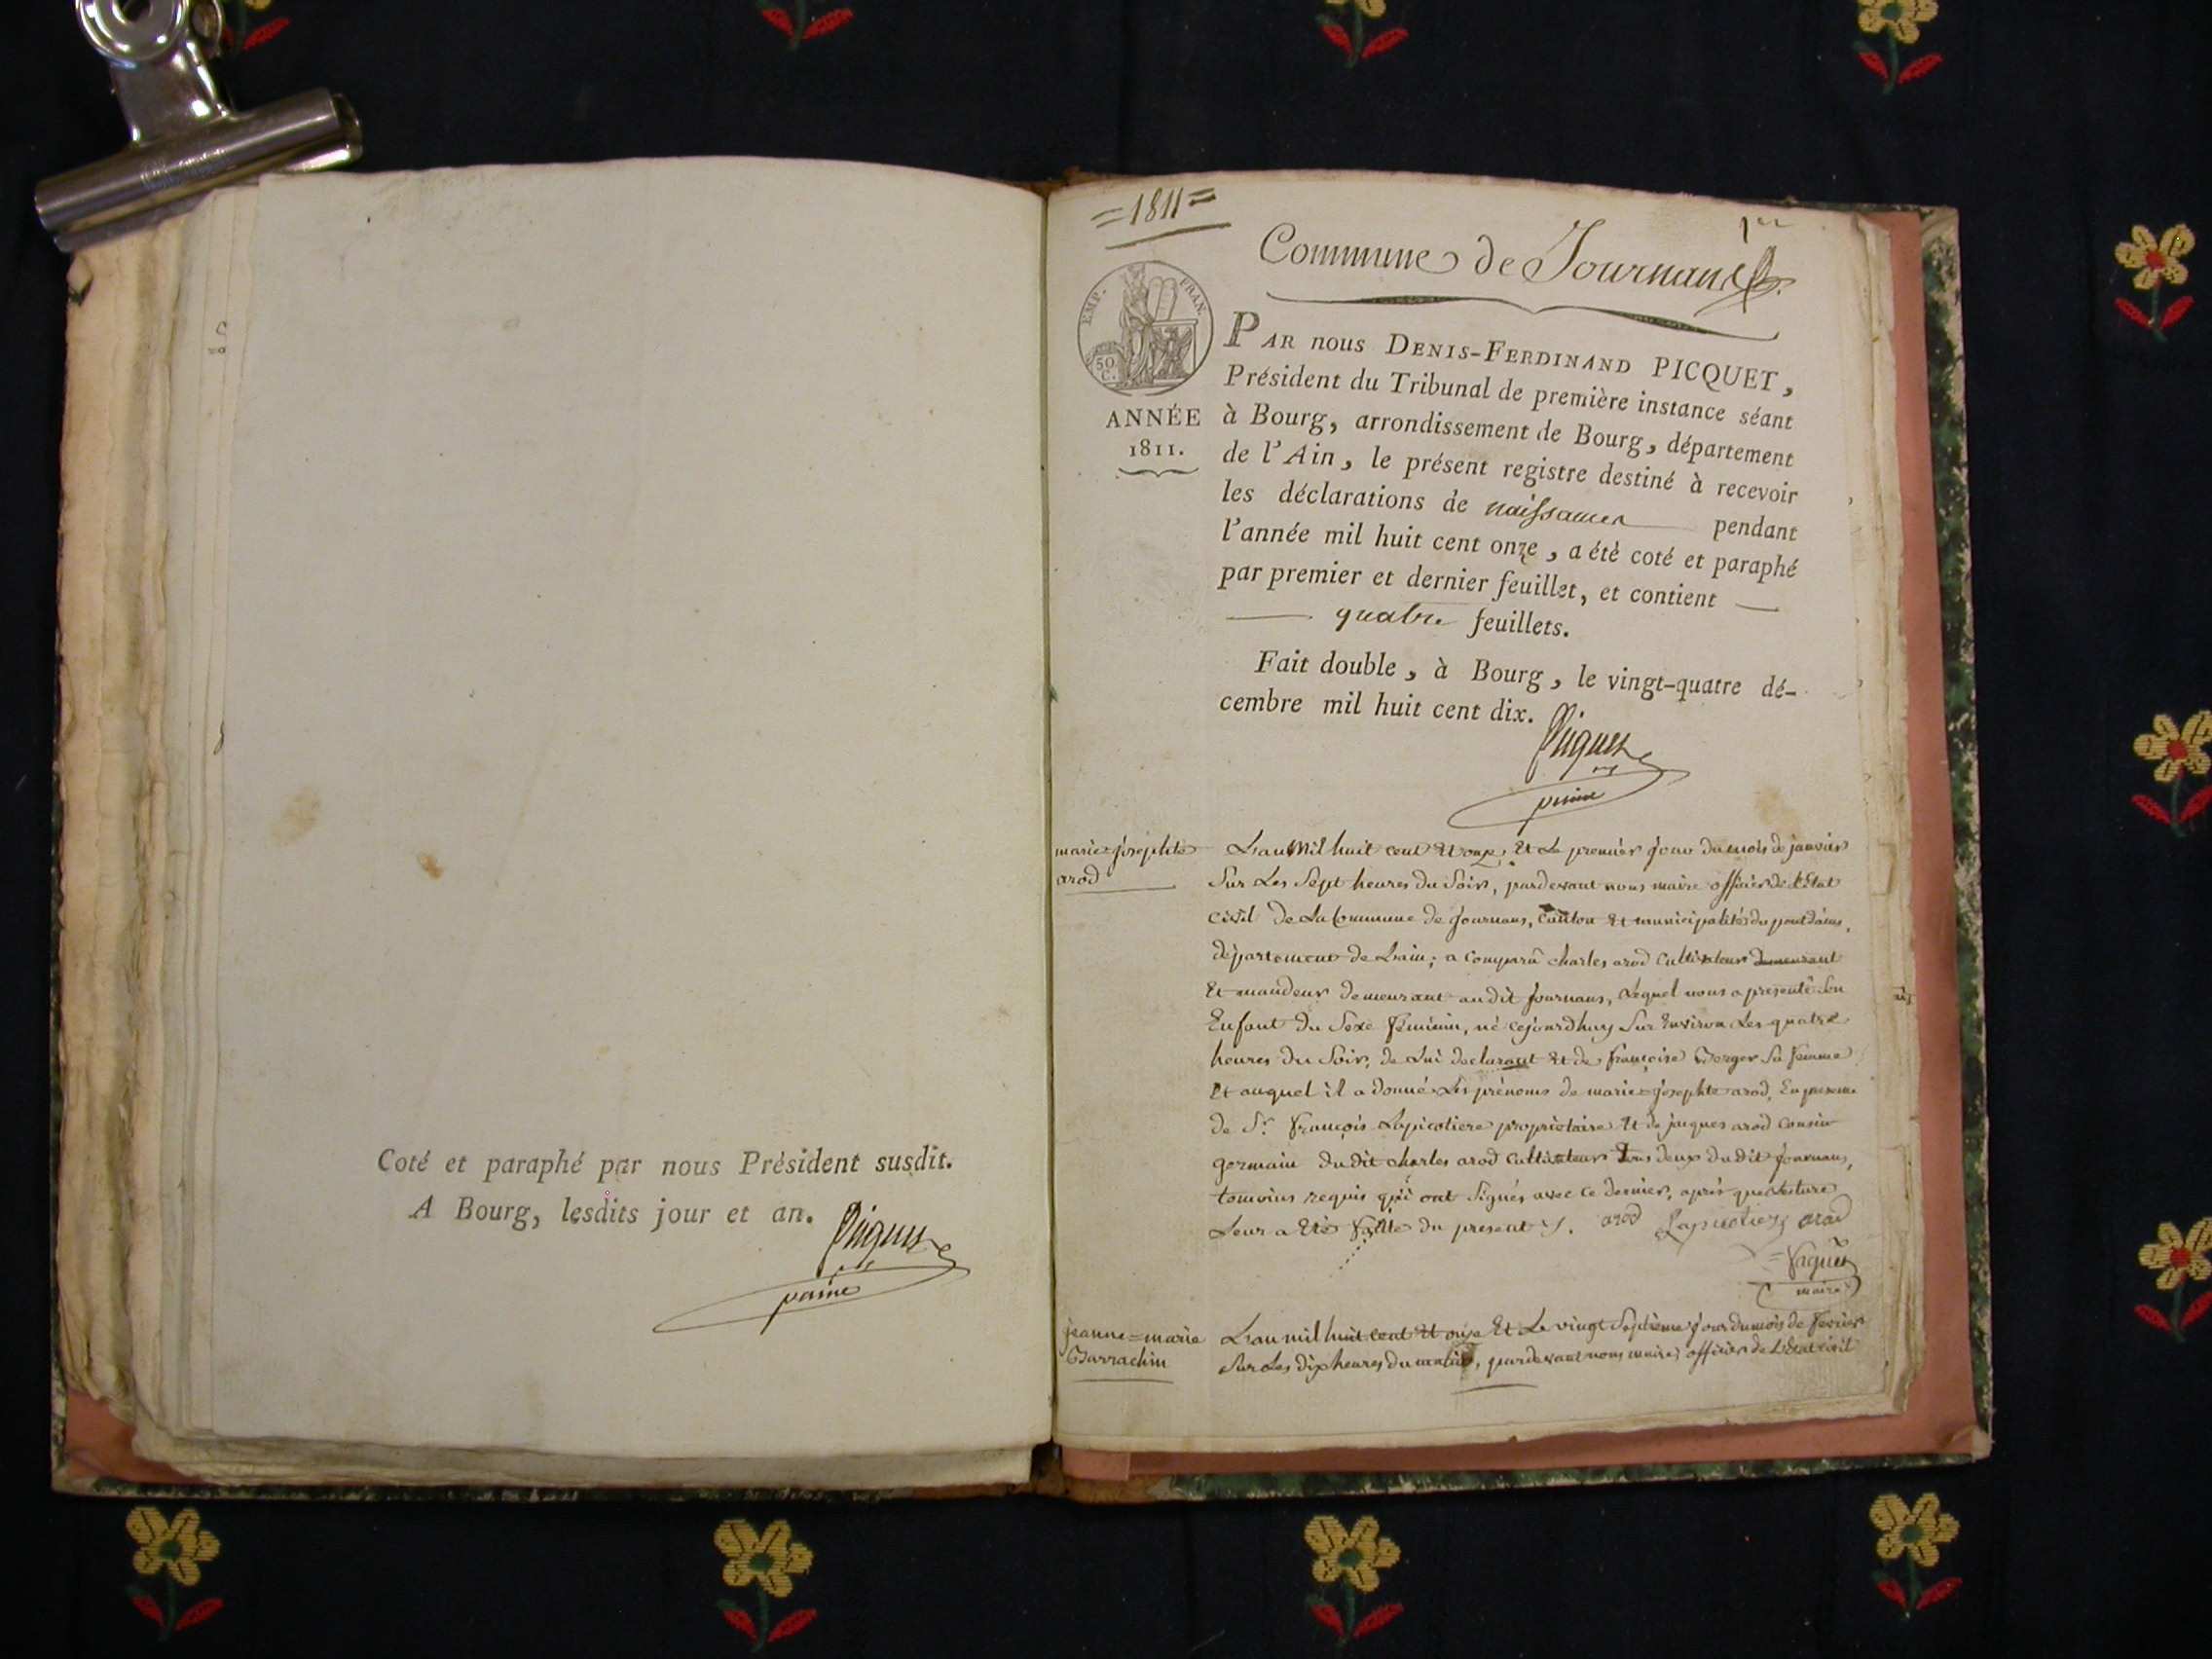 Coté et paraphé par nous Président susdit.
A Bourg, lesdits jour et an.
Picquet
=1811=
1er
Commune de Journans
EMP. FRAN.
50 C.
ANNÉE
1811.
PAR nous DENIS-FERDINAND PICQUET,
Président du Tribunal de première instance séant
à Bourg, arrondissement de Bourg, département
de l'Ain, le présent registre destiné à recevoir
les déclarations de naissances pendant
l'année mil huit cent onze, a été coté et paraphé
par premier et dernier feuillet, et contient
quatre feuillets.
Fait double, à Bourg, le vingt-quatre dé-
cembre mil huit cent dix.
Picquet
marie=josephte
arod
L'an Mil huit cent et onze, Et Le premier jour du mois de janvier
Sur Les Sept heures du Soir, pardevant nous maire officier de l'Etat
civil de La Commune de journans, Canton Et municipalité du pont d'ains,
département de L'ain; a Comparû charles arod Cultivateur demeurant
Et demeurant au dit journans, Lequel nous a presenté Son
Enfant du Sexe feminin, né cejourdhuy Sur Environ Les quatre
heures du Soir, de Lui declarant Et de françoise Berger Sa femme
Et auquel il a donné Les prénoms de marie=josephte arod, En presence
de Sr. François Lapicotiere proprietaire Et de jacques arod Cousin
germain du dit charles arod Cultivateur tous deux du dit journans,
temoins requis qui ont Signés avec ce dernier, après que Lecture
Leur a Eté faitte du present. arod Lapicotiere arod
maire
jeanne=marie
Barrachin
L'an mil huit cent Et onze Et Le vingt Septieme jour du mois de fevrier
Sur Les dix heures du matin, pardevant nous maire officier de L'Etat civil